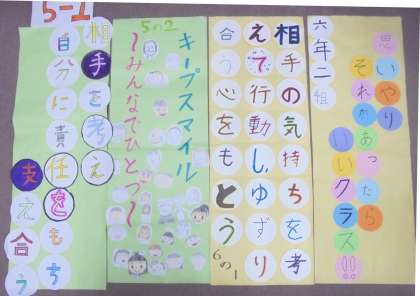 六年二組
思いやり
それが
あったら
いいクラス!!
相手の気持ちを考
えて行動しゆずり
合う心をもとう
6の1
5の2
キープスマイル
〜みんなでひとつ〜
5-1
相手を考え
自分に責任をもち
支え合う